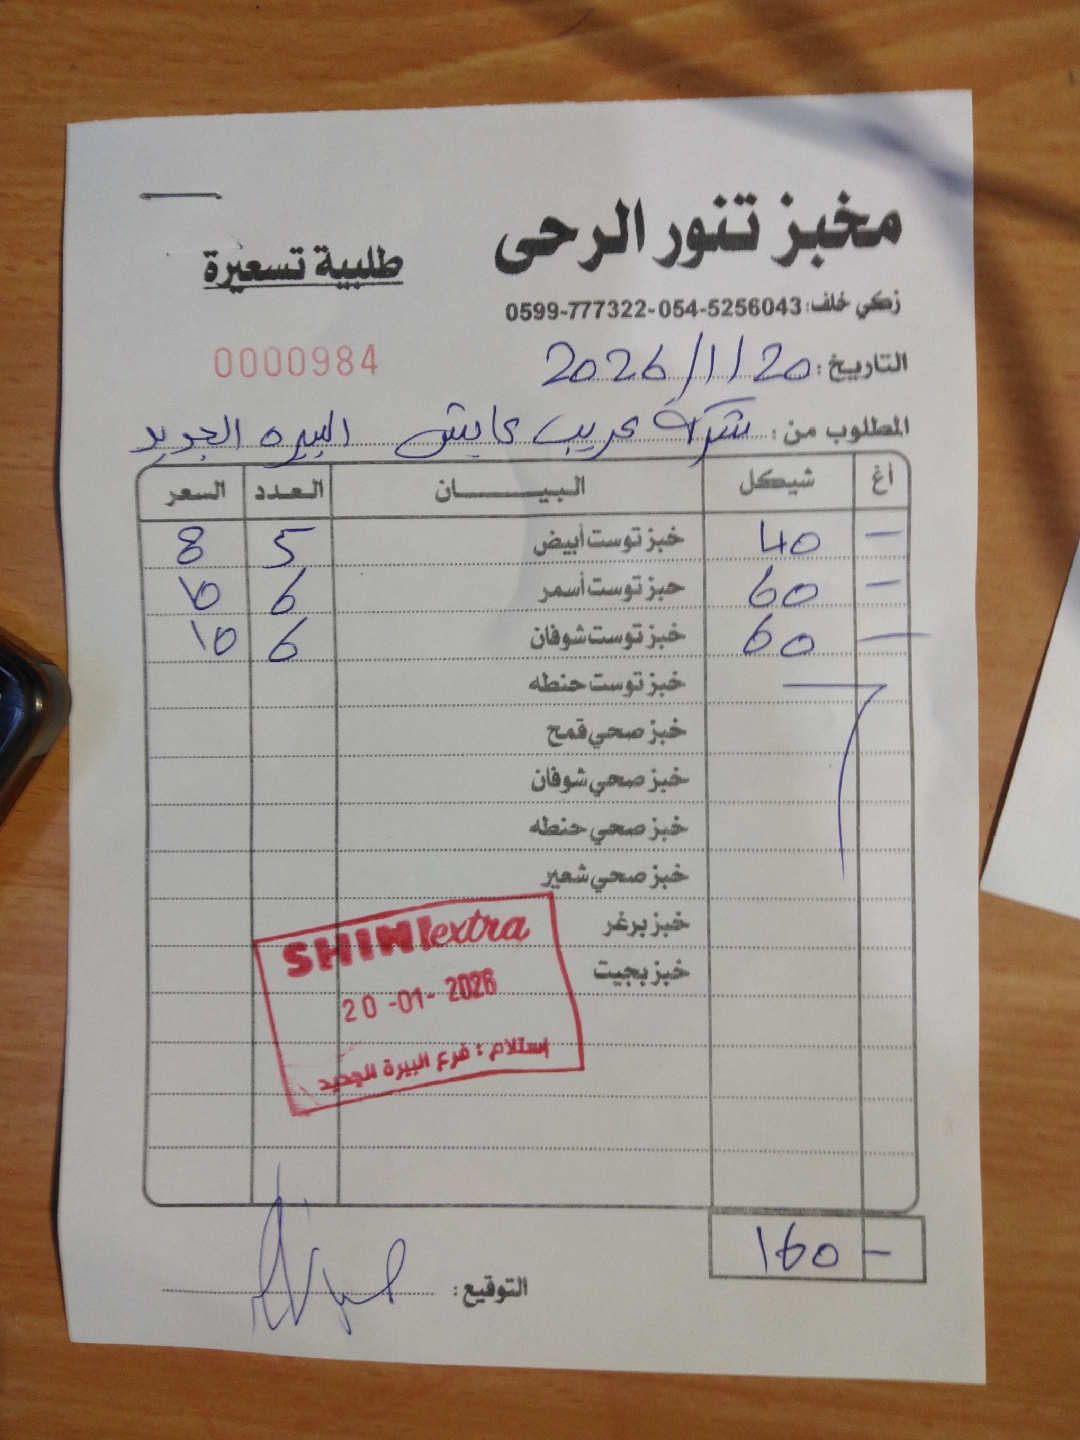 مخبز تنور الرحى
طلبية تسعيرة
زكي خلف: 0599-777322-054-5256043
0000984
التاريخ: 2026/1/20
المطلوب من: شركة عريب عايش البيره الجديد
أغ شيكل البيـــــان العدد السعر
— 40 خبز توست أبيض 5 8
— 60 خبز توست أسمر 6 10
— 60 خبز توست شوفان 6 10
خبز توست حنطه
خبز صحي قمح
خبز صحي شوفان
خبز صحي حنطه
خبز صحي شعير
خبز برغر
خبز بجيت
SHINI extra
20-01-2026
إستلام : فرع البيرة الجديد
160 —
التوقيع: